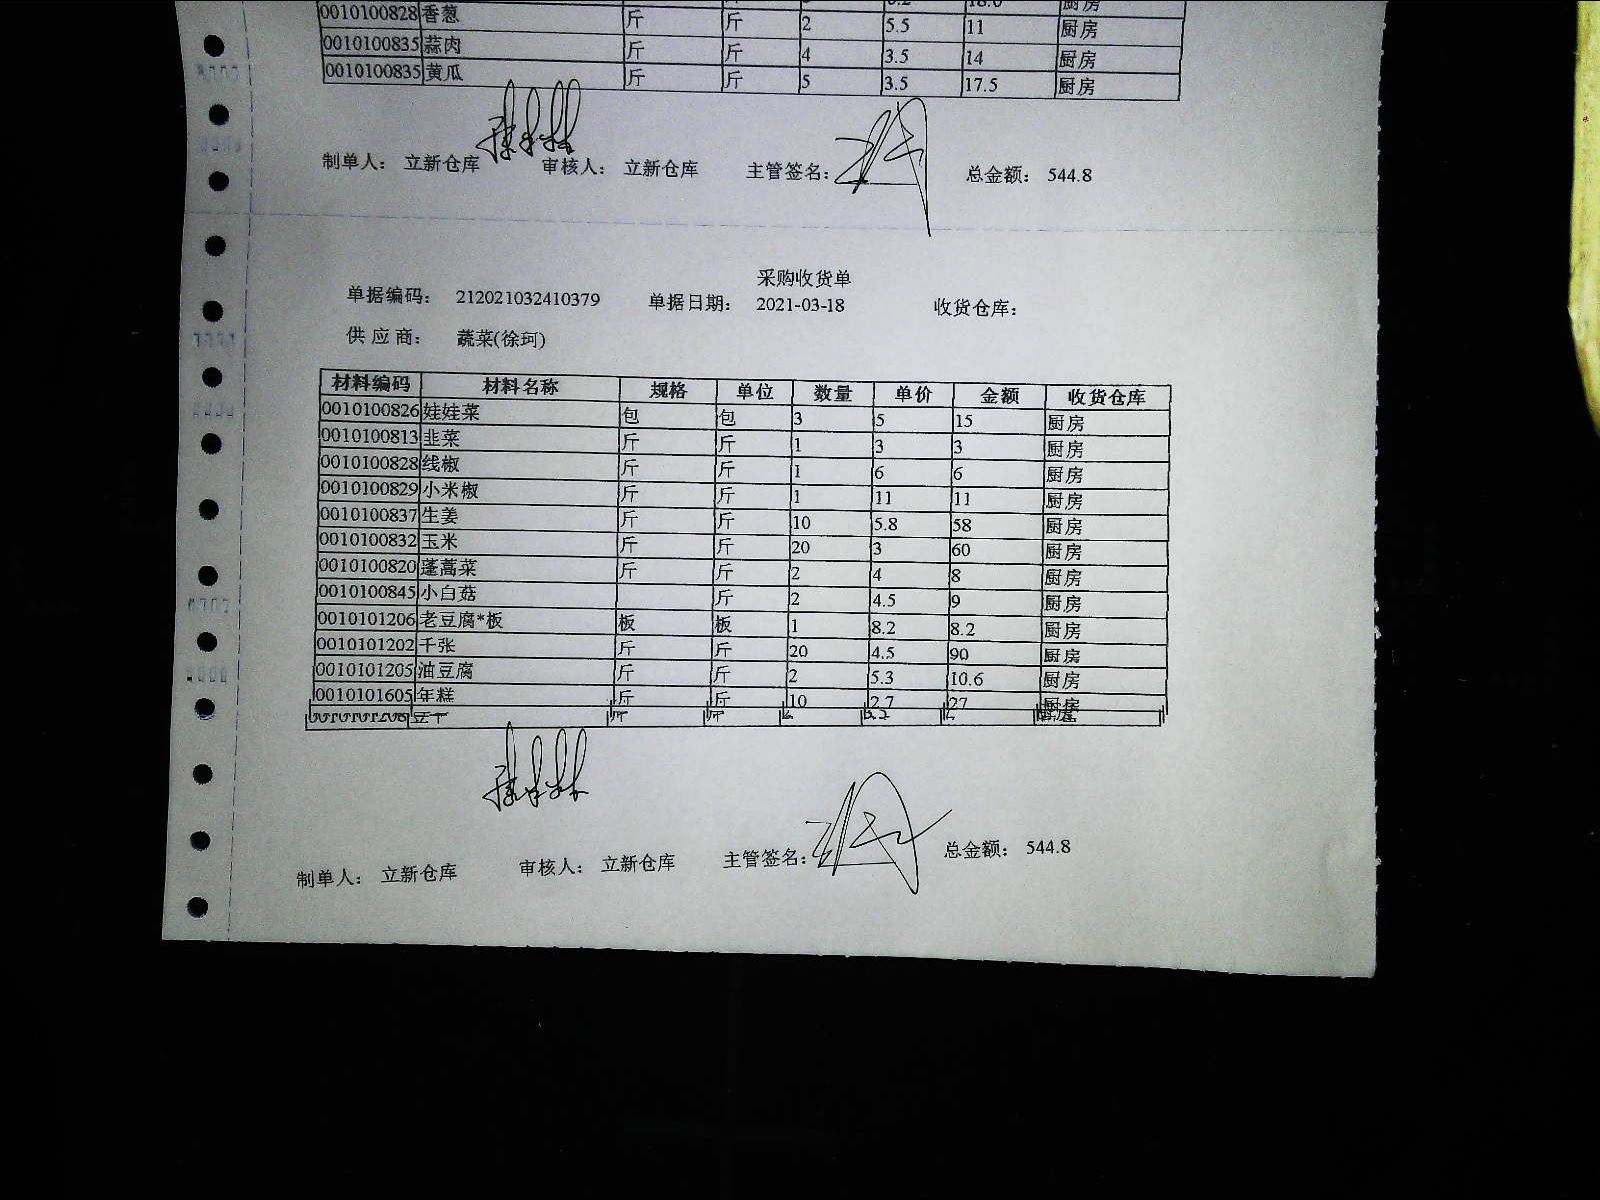 0010100828 香葱 斤 斤 2 5.5 11 厨房
0010100835 蒜肉 斤 斤 4 3.5 14 厨房
0010100835 黄瓜 斤 斤 5 3.5 17.5 厨房
制单人： 立新仓库 审核人： 立新仓库 主管签名： 总金额： 544.8
采购收货单
单据编码： 212021032410379 单据日期： 2021-03-18 收货仓库：
供应商： 蔬菜(徐珂)
材料编码 材料名称 规格 单位 数量 单价 金额 收货仓库
0010100826 娃娃菜 包 包 3 5 15 厨房
0010100813 韭菜 斤 斤 1 3 3 厨房
0010100828 线椒 斤 斤 1 6 6 厨房
0010100829 小米椒 斤 斤 1 11 11 厨房
0010100837 生姜 斤 斤 10 5.8 58 厨房
0010100832 玉米 斤 斤 20 3 60 厨房
0010100820 蓬蒿菜 斤 斤 2 4 8 厨房
0010100845 小白菇 斤 2 4.5 9 厨房
0010101206 老豆腐*板 板 板 1 8.2 8.2 厨房
0010101202 千张 斤 斤 20 4.5 90 厨房
0010101205 油豆腐 斤 斤 2 5.3 10.6 厨房
0010101605 年糕 斤 斤 10 2.7 27 厨房
制单人： 立新仓库 审核人： 立新仓库 主管签名： 总金额： 544.8